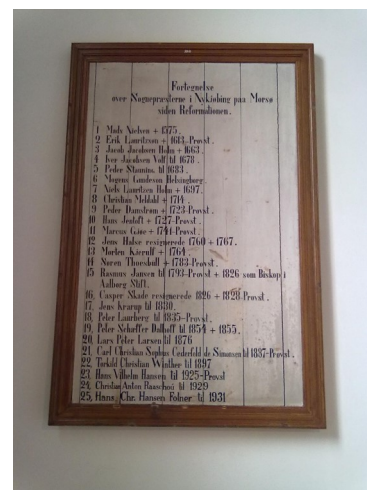 Fortegnelse
over Sognepræsterne i Nykjøbing paa Morsø
siden Reformationen.
1 Mads Nielsen + 1575.
2 Erik Lauritzsen + 1613-Provst.
3 Jacob Jacobsen Holm + 1663.
4 Iver Jacobsen Volf til 1678.
5 Peder Stamius til 1683.
6 Mogens Gundesøn Helsingborg.
7 Niels Lauritzen Holm + 1697.
8 Christian Meldahl + 1714.
9 Peder Damstrøm + 1723-Provst.
10 Hans Jestoft + 1727-Provst.
11 Marcus Gjøe + 1741-Provst.
12 Jens Halse resignerede 1760 + 1767.
13 Morten Kierulf + 1764.
14 Søren Thorsholl + 1783-Provst.
15 Rasmus Jansen til 1793-Provst + 1826 som Biskop i
Aalborg Stift.
16, Casper Skade resignerede 1826 + 1828 Provst.
17, Jens Krarup til 1830.
18, Peter Laurberg til 1835-Provst.
19, Peter Schæffer Dolhoff til 1854 + 1855.
20, Lars Peter Larsen til 1876
21, Carl Christian Sophus Cederfeld de Simonsen til 1887-Provst.
22, Torkild Christian Winther til 1897
23, Hans Vilhelm Hansen til 1925-Provst
24, Christian Anton Raaschou til 1929
25, Hans, Chr. Hansen Folner til 1931